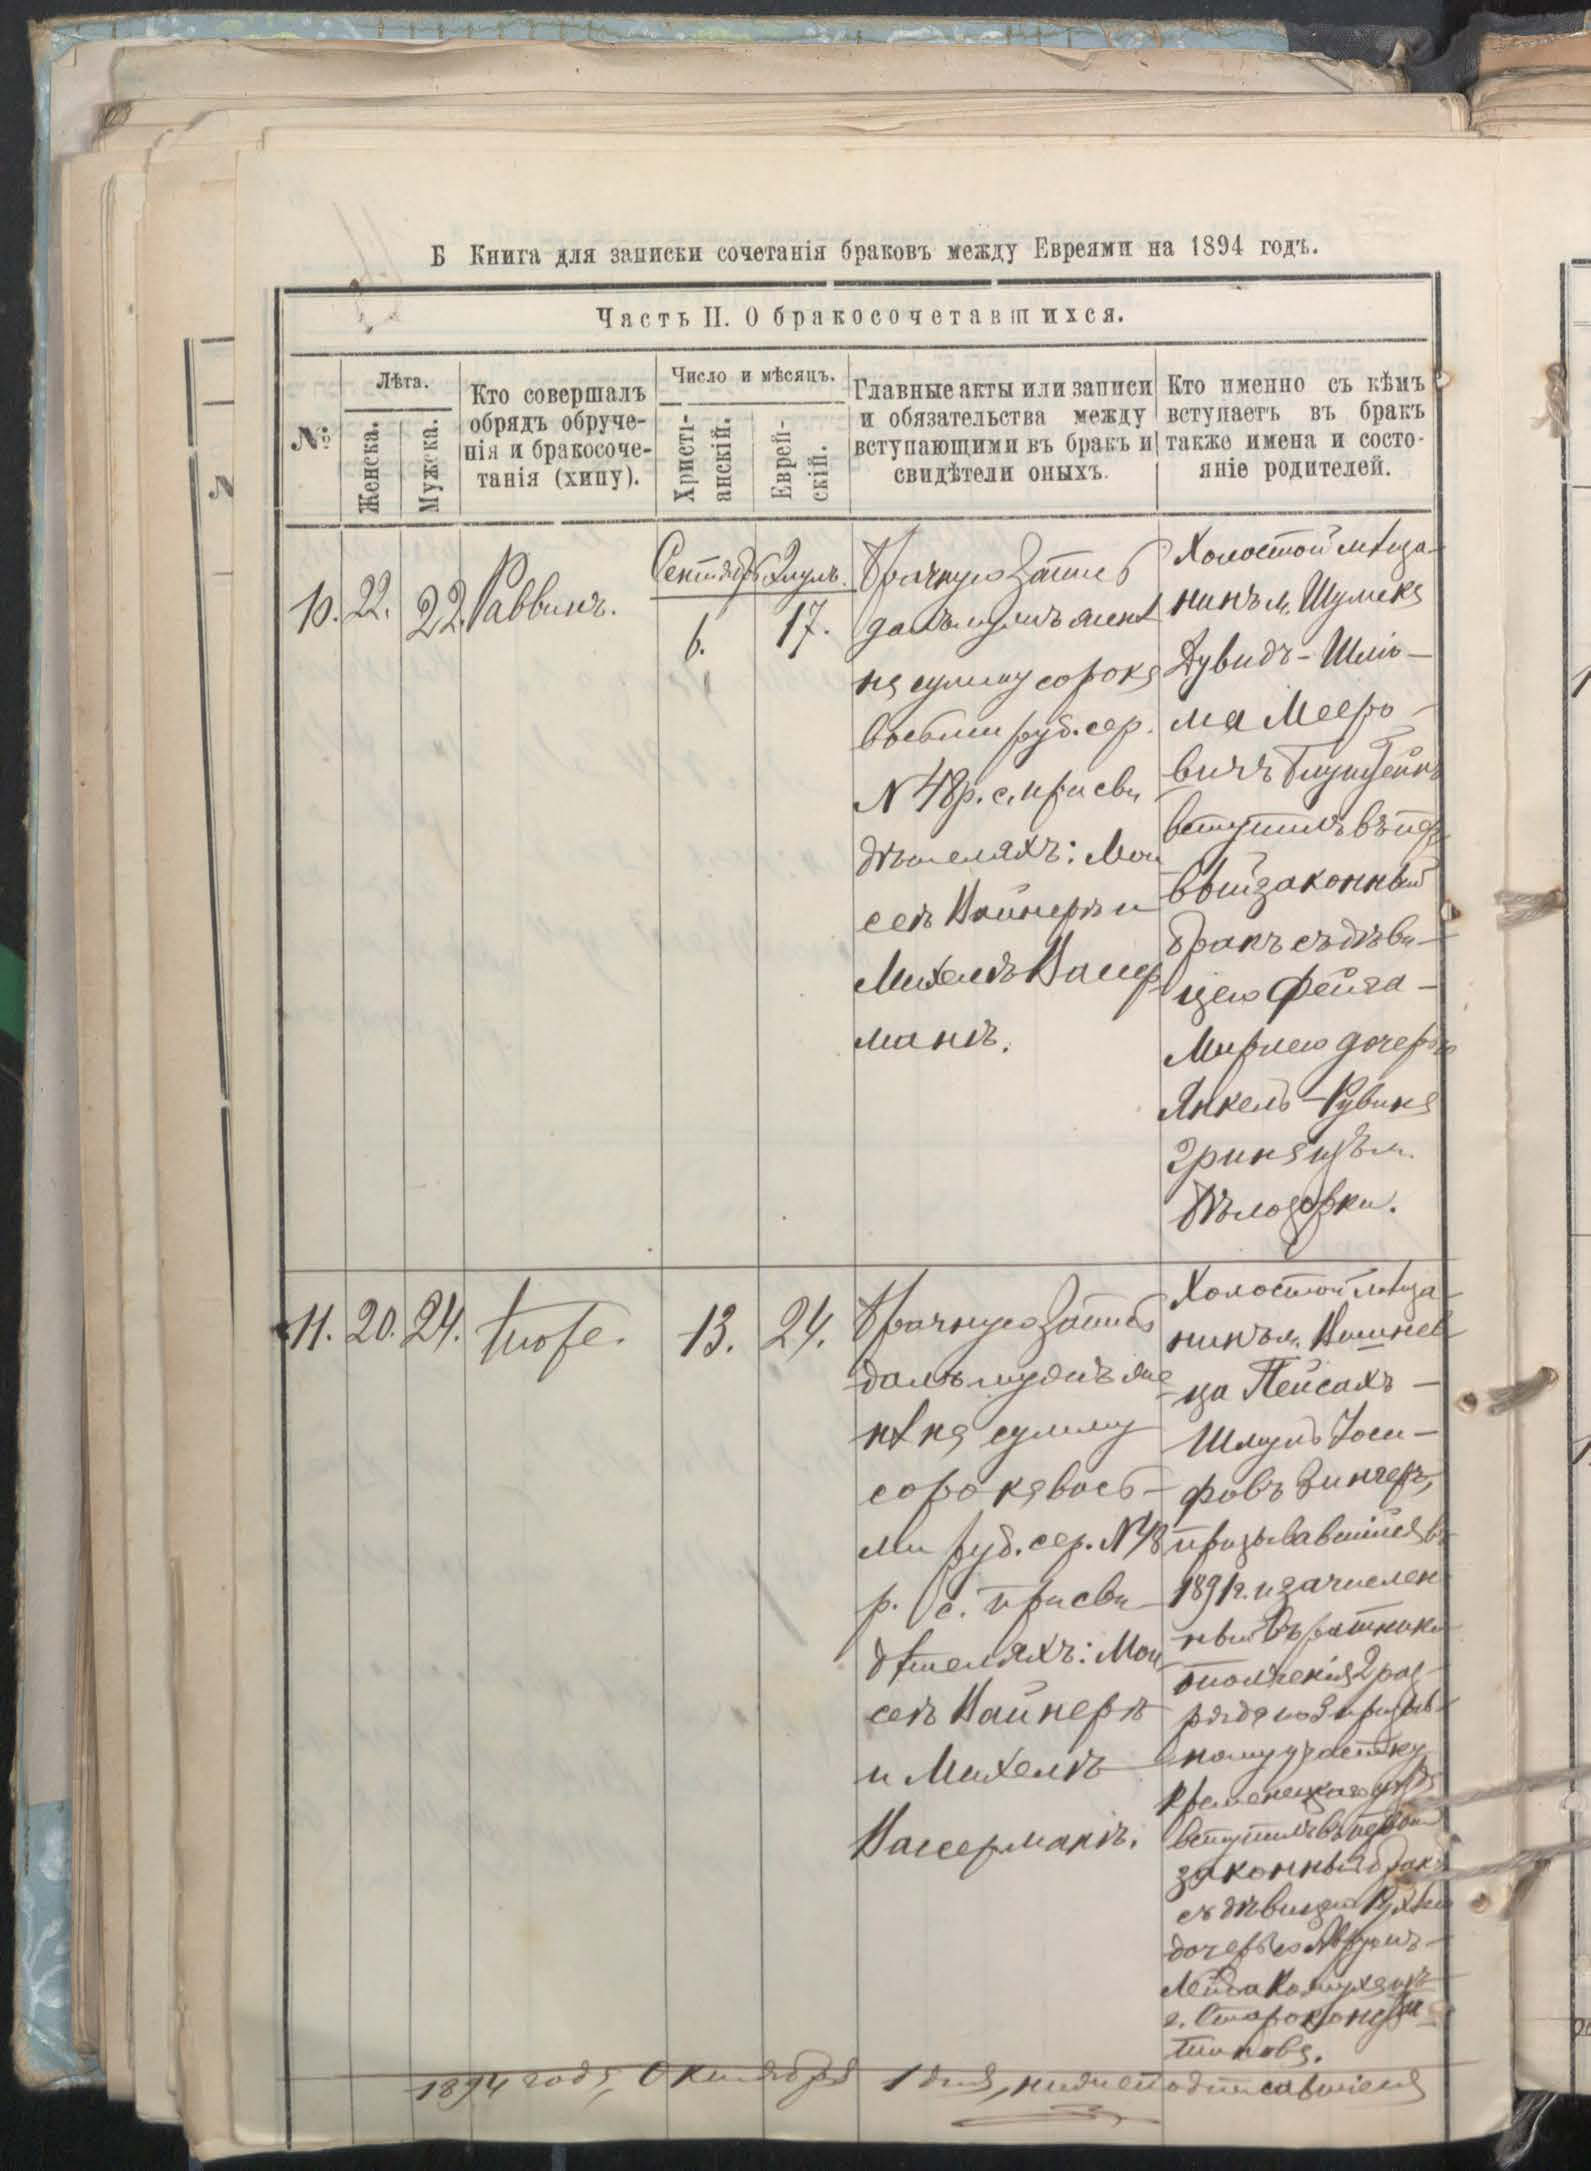 Б Книга для записки сочетанія браковъ между Евреями на 1894 годъ.
Часть II. О бракосочетавшихся.
№
Лѣта.
Женска.
Мужска.
Кто совершалъ
обрядъ обруче-
нія и бракосоче-
танія (хипу).
Число и мѣсяцъ.
Христі-
анскій.
Еврей-
скій.
Главные акты или записи
и обязательства между
вступающими въ бракъ и
свидѣтели оныхъ.
Кто именно съ кѣмъ
вступаетъ въ бракъ
также имена и состо-
яніе родителей.
10.
22.
22.
Раввинъ.
Сентябрь
6.
Элулъ.
17.
Брачную запись
далъ мужъ женѣ
на сумму сорока
восьми руб. сер.
N 48 р. с. при сви
дѣтеляхъ: Мои
сеѣ Вайнерѣ и
Михелѣ Вассер
манѣ.
Холостой мѣща-
нинъ м. Шумска
Дувидъ-Шлiо-
ма Мееро-
вичъ
вступилъ въ пер
вый законный
бракъ съ дѣви-
цею Фейга-
Мирлею дочерью
Янкель-Рувина
м.
Бѣлозорки.
11.
20.
24.
тоже.
13.
24.
Брачную запись
далъ мужъ же
нѣ на сумму
сорока вось-
ми руб. сер. N 48
р. с. при сви
дѣтеляхъ: Мои
сеѣ Вайнерѣ
и Михелѣ
Вассерманѣ.
Холостой мѣща-
нинъ м. Вишнев
ца Пейсахъ-
Шмуль Іоси-
фовъ Зингеръ,
призывавшійся въ
1891 г. и зачислен
ный въ ратники
ополченія 2 раз-
ряда по 3 призыв-
ному участку
Кременецкаго уѣзда
вступилъ въ первый
законный бракъ
съ дѣвицею Рухлею
дочерью Аврумъ-
Лейба
г. Староконстан-
тинова.
1894 года, Октября 1 дня, нижеподписавшіеся